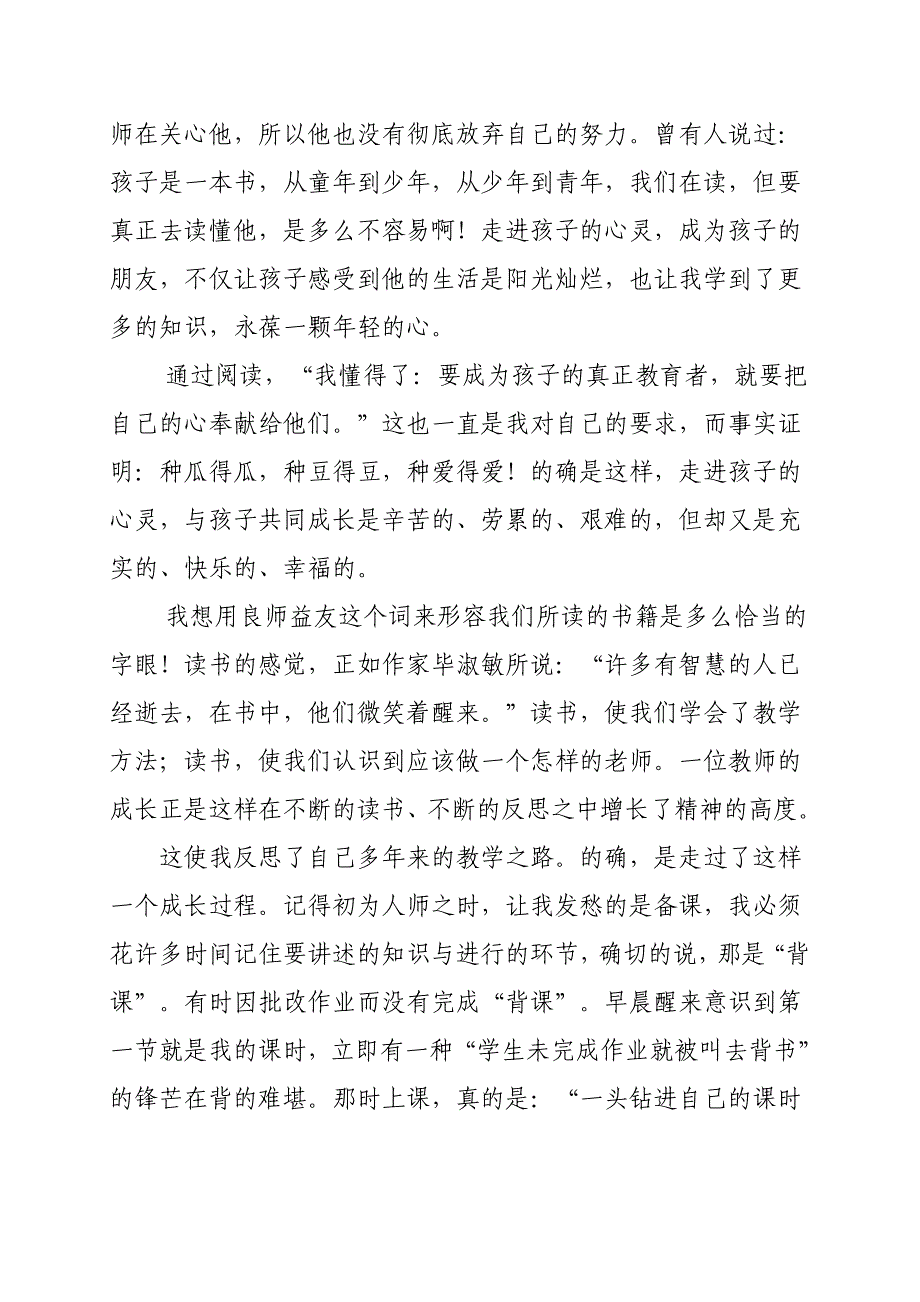 师在关心他，所以他也没有彻底放弃自己的努力。曾有人说过：
孩子是一本书，从童年到少年，从少年到青年，我们在读，但要
真正去读懂他，是多么不容易啊！走进孩子的心灵，成为孩子的
朋友，不仅让孩子感受到他的生活是阳光灿烂，也让我学到了更
多的知识，永葆一颗年轻的心。
通过阅读，“我懂得了：要成为孩子的真正教育者，就要把
自己的心奉献给他们。”这也一直是我对自己的要求，而事实证
明：种瓜得瓜，种豆得豆，种爱得爱！的确是这样，走进孩子的
心灵，与孩子共同成长是辛苦的、劳累的、艰难的，但却又是充
实的、快乐的、幸福的。
我想用良师益友这个词来形容我们所读的书籍是多么恰当的
字眼！读书的感觉，正如作家毕淑敏所说：“许多有智慧的人已
经逝去，在书中，他们微笑着醒来。”读书，使我们学会了教学
方法；读书，使我们认识到应该做一个怎样的老师。一位教师的
成长正是这样在不断的读书、不断的反思之中增长了精神的高度。
这使我反思了自己多年来的教学之路。的确，是走过了这样
一个成长过程。记得初为人师之时，让我发愁的是备课，我必须
花许多时间记住要讲述的知识与进行的环节，确切的说，那是“背
课”。有时因批改作业而没有完成“背课”。早晨醒来意识到第
一节就是我的课时，立即有一种“学生未完成作业就被叫去背书”
的锋芒在背的难堪。那时上课，真的是：“一头钻进自己的课时